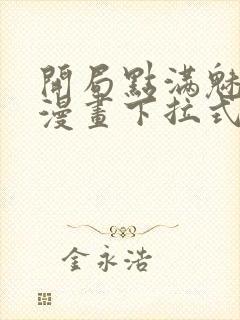 開局點滿魅
漫畫下拉式
金永浩